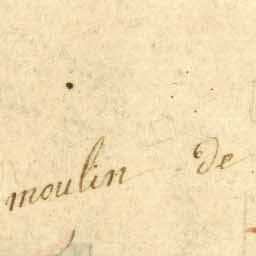 moulin de